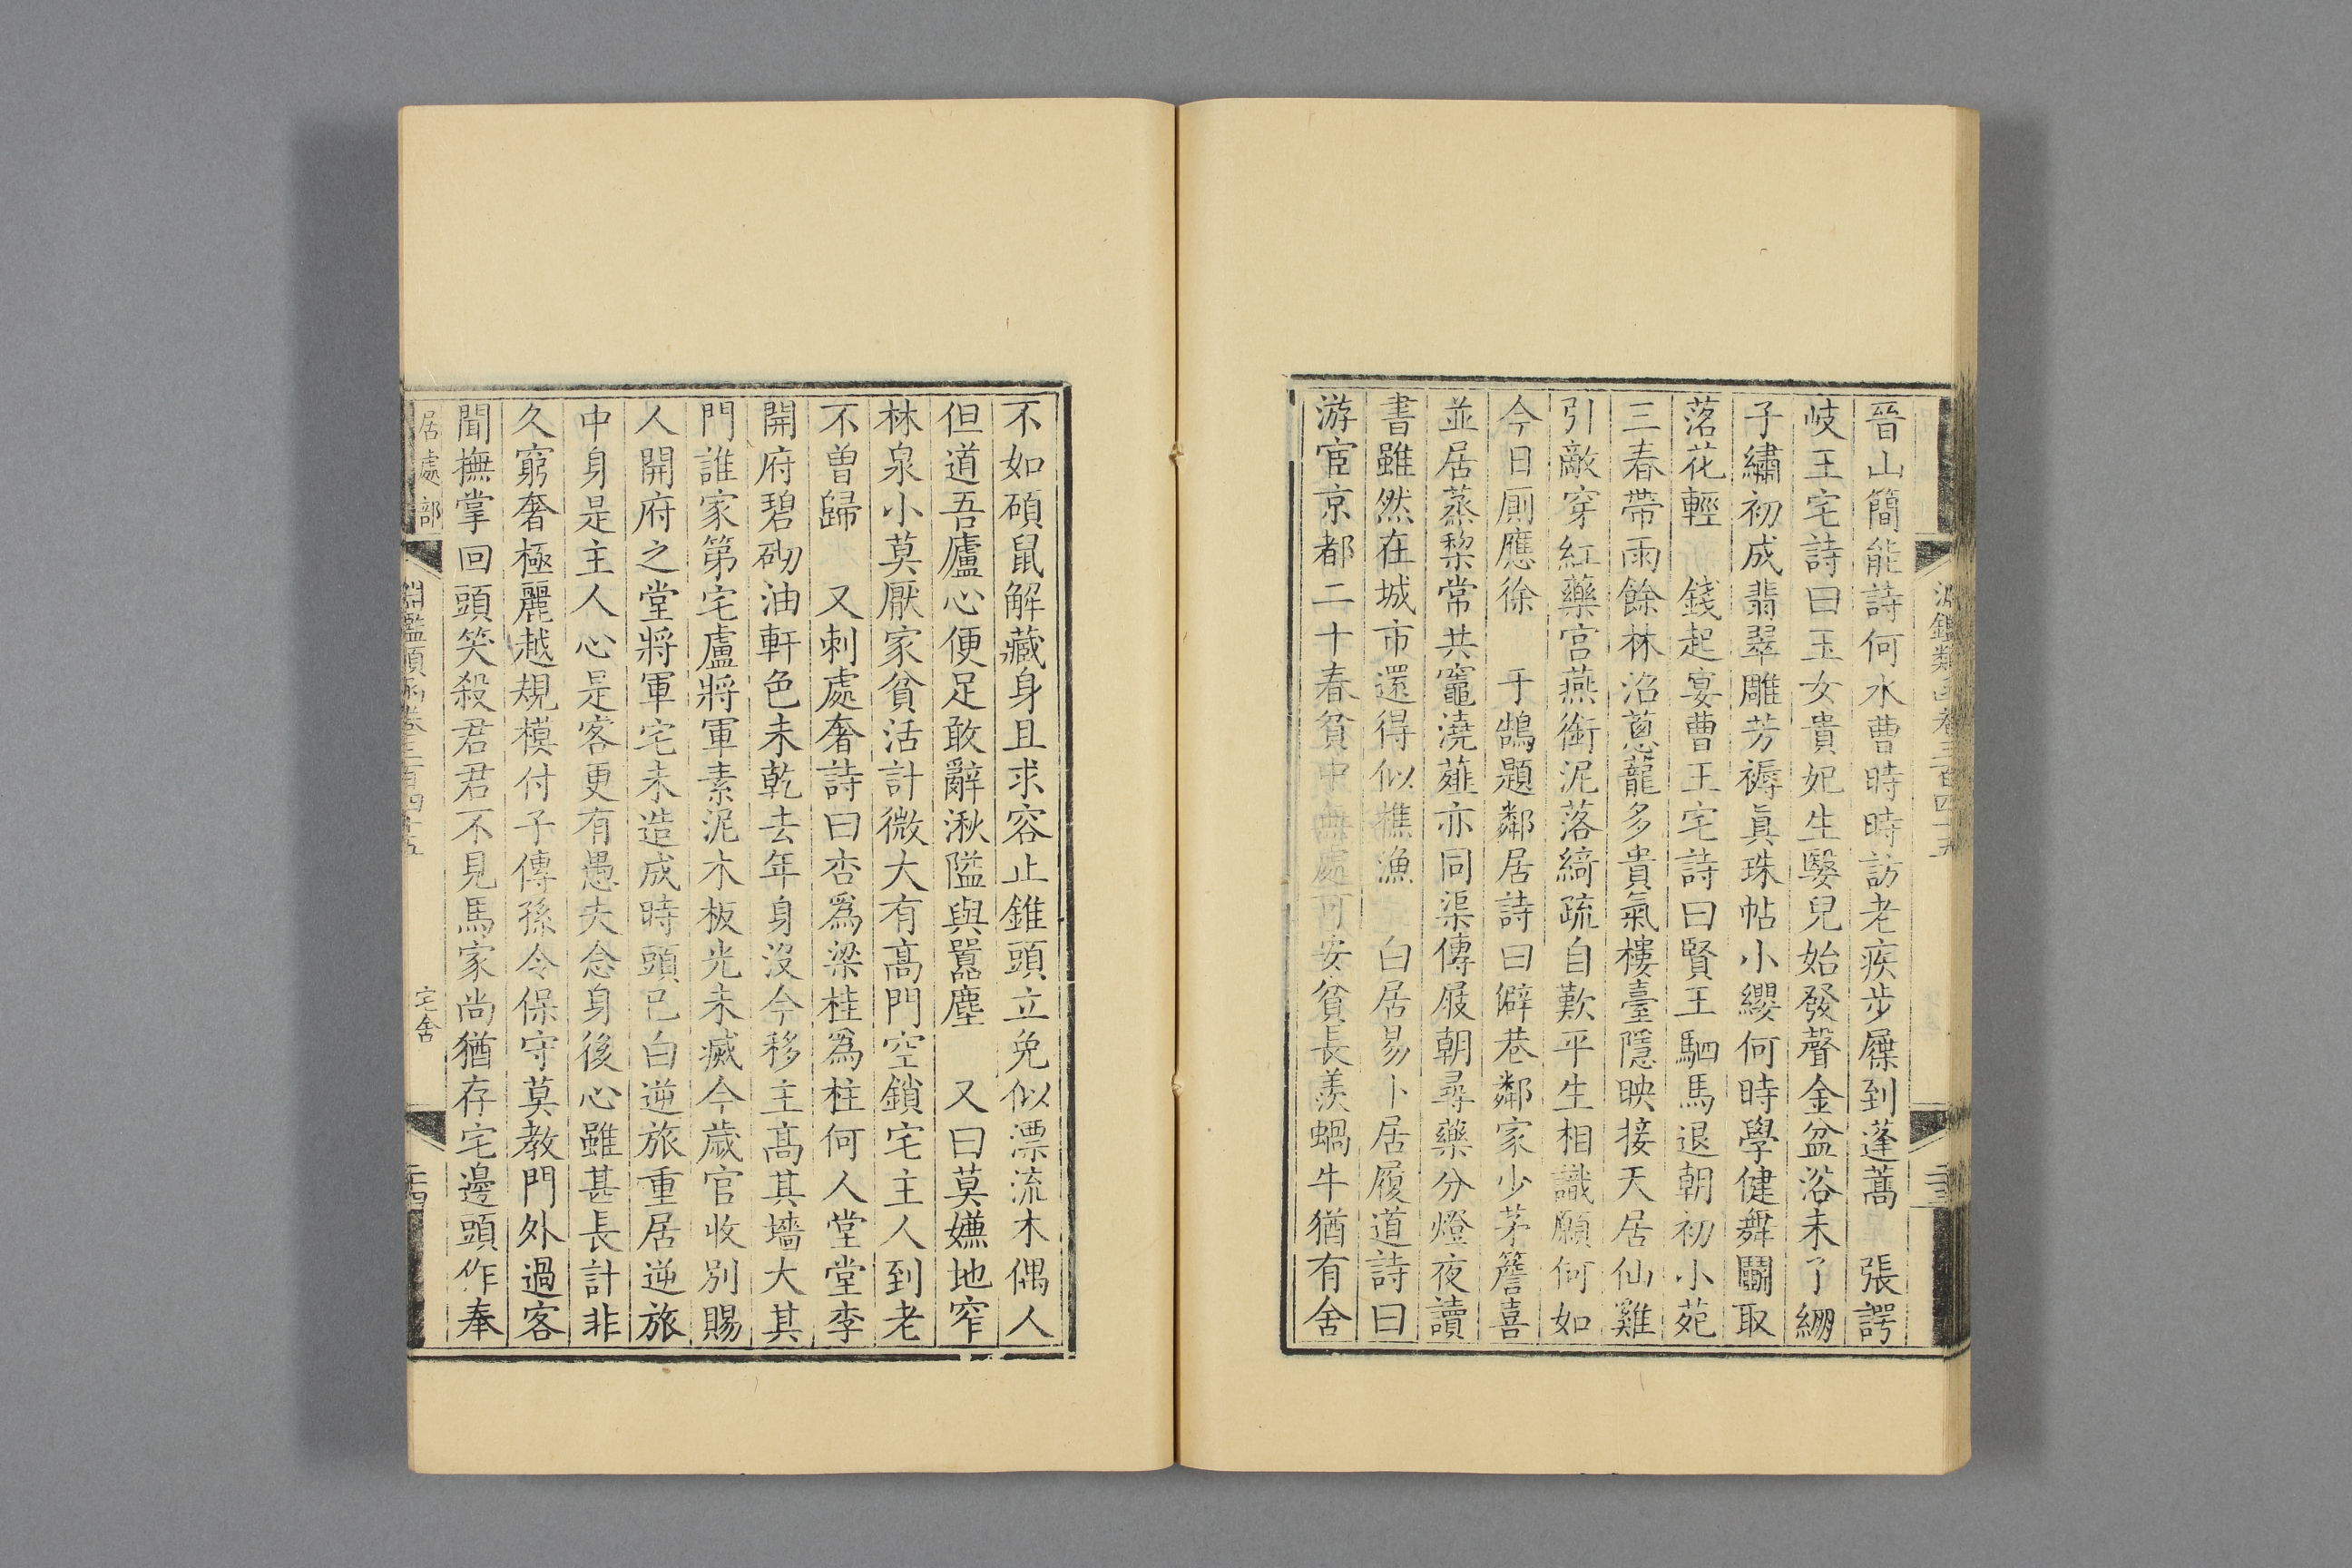 晉山簡能詩何水曹時時訪老疾步屧到蓬蒿　張諤
岐王宅詩曰玉女貴妃生嫛兒始發聲金盆浴未了綳
子繡初成翡翠雕芳褥眞珠帖小纓何時學健舞鬭取
落花輕　錢起宴曹王宅詩曰賢王駟馬退朝初小苑
三春帶雨餘林沼蔥蘢多貴氣樓臺隱映接天居仙雞
引敵穿紅藥宮燕銜泥落綺疏自歎平生相識願何如
今日廁應徐　于鵠題鄰居詩曰僻巷鄰家少茅簷喜
並居蒸梨常共竈澆薤亦同渠傳屐朝尋藥分燈夜讀
書雖然在城市還得似樵漁　白居易卜居履道詩曰
游宦京都二十春貧中無處可安貧長羨蝸牛猶有舍
不如碩鼠解藏身且求容止錐頭立免似漂流木偶人
但道吾廬心便足敢辭湫隘與囂塵　又曰莫嫌地窄
林泉小莫厭家貧活計微大有高門空鎖宅主人到老
不曾歸　又刺處奢詩曰杏爲梁桂爲柱何人堂堂李
開府碧砌油軒色未乾去年身沒今移主高其墻大其
門誰家第宅盧將軍素泥木板光未滅今歲官收別賜
人開府之堂將軍宅未造成時頭已白逆旅重居逆旅
中身是主人心是客更有愚夫念身後心雖甚長計非
久窮奢極麗越規模付子傳孫令保守莫教門外過客
聞撫掌回頭笑殺君君不見馬家尚猶存宅邊頭作奉
居處部
淵鑑類函卷三百四十五
宅舍
二十四